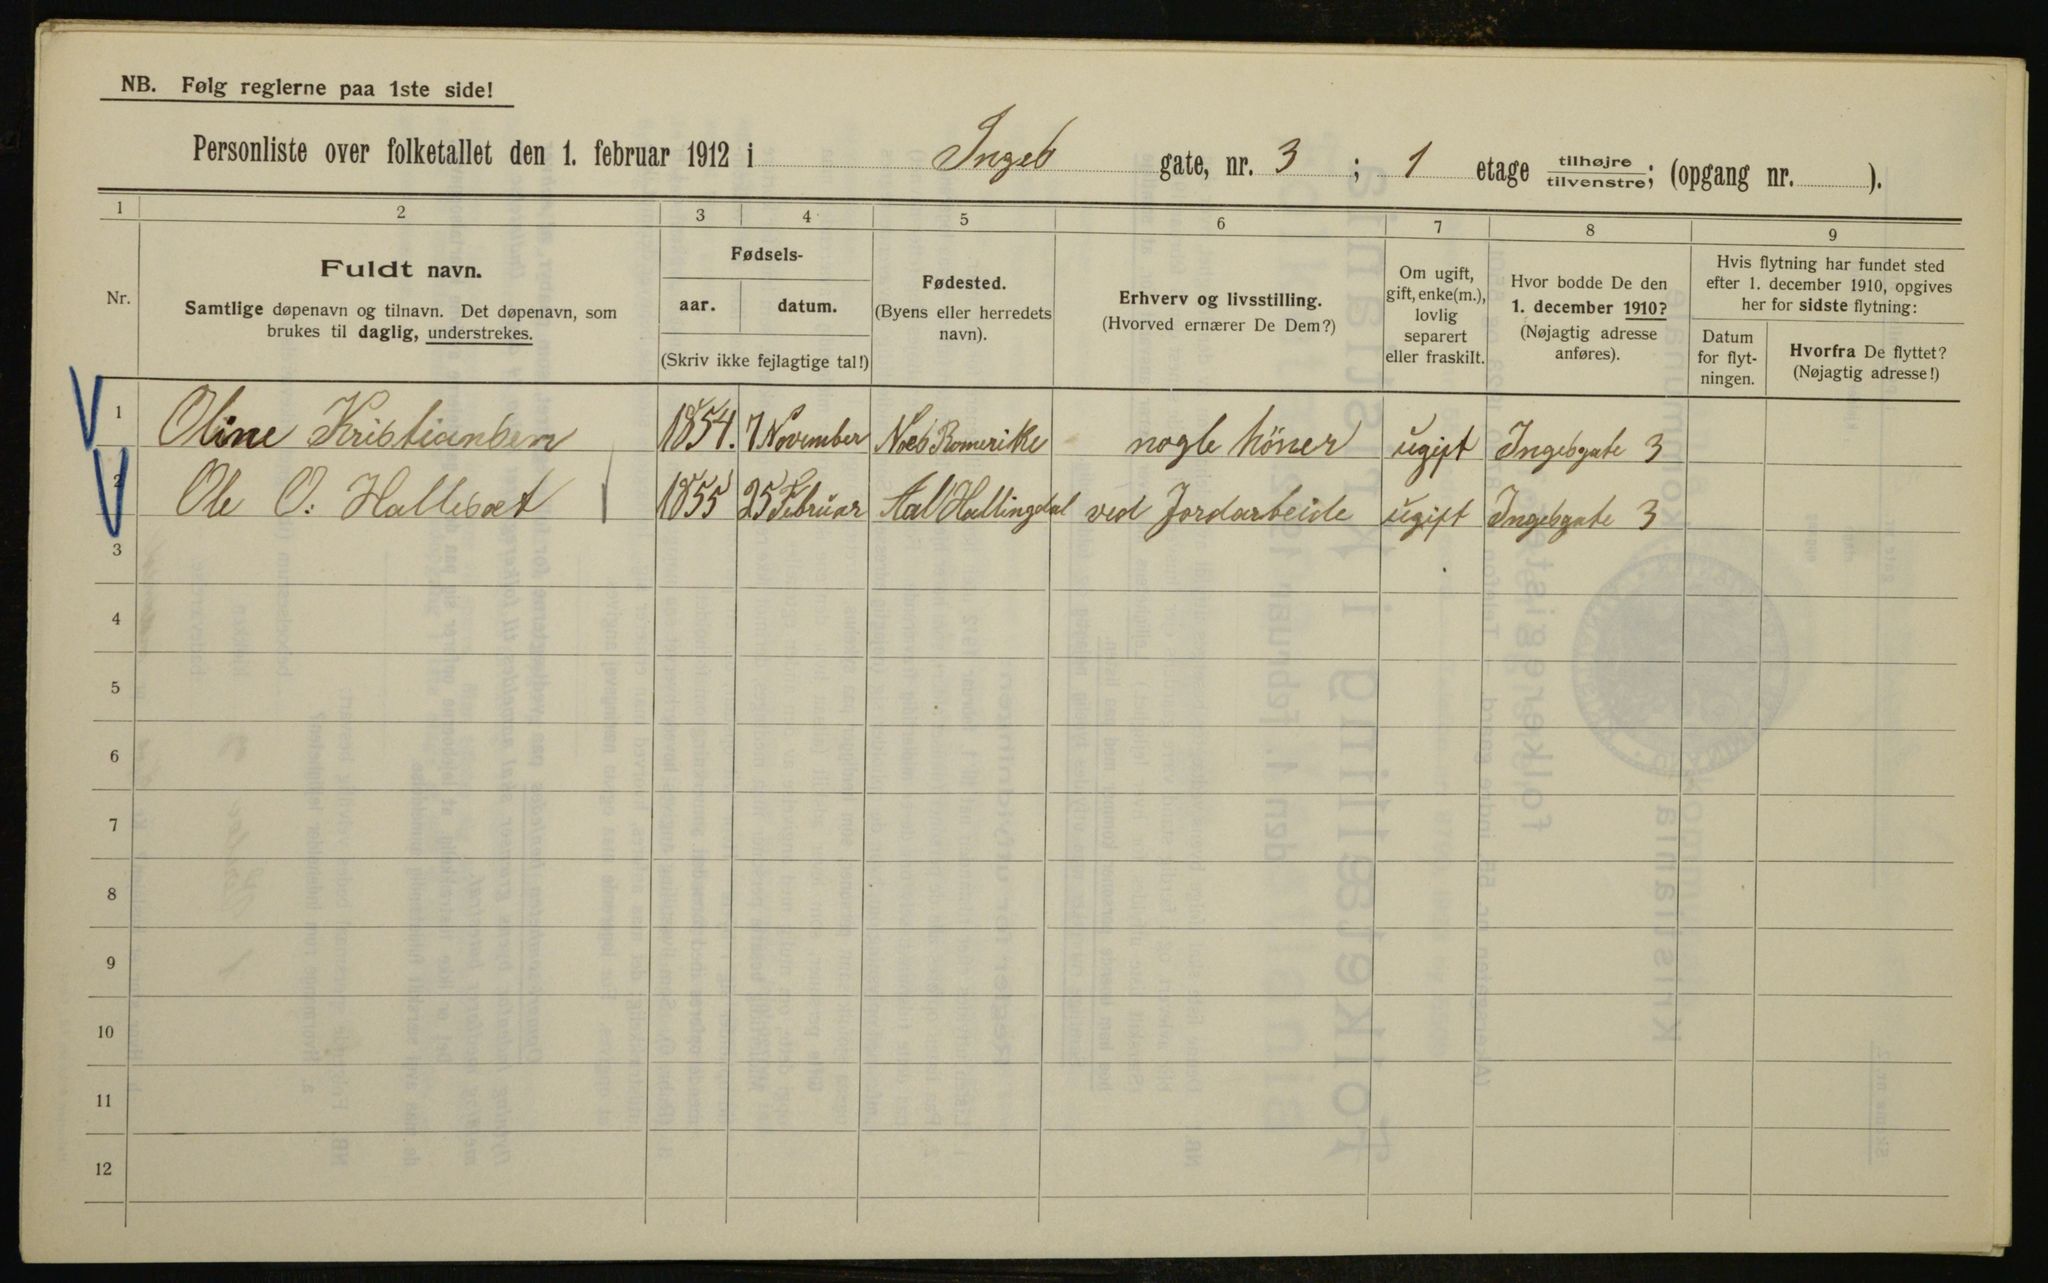 NB. Følg reglerne paa 1ste side!
Personliste over folketallet den 1. februar 1912 i Ingeb gate, nr. 3 ; 1 etage tilhøjre/tilvenstre; (opgang nr. ).
1 2 3 4 5 6 7 8 9
Nr.
Fuldt navn.
Samtlige døpenavn og tilnavn. Det døpenavn, som
brukes til daglig, understrekes.
Fødsels-
aar. datum.
(Skriv ikke fejlagtige tal!)
Fødested.
(Byens eller herredets
navn).
Erhverv og livsstilling.
(Hvorved ernærer De Dem?)
Om ugift,
gift, enke(m.),
lovlig
separert
eller fraskilt.
Hvor bodde De den
1. december 1910?
(Nøjagtig adresse
anføres).
Hvis flytning har fundet sted
efter 1. december 1910, opgives
her for sidste flytning:
Datum
for flyt-
ningen.
Hvorfra De flyttet?
(Nøjagtig adresse!)
1 Oline Kristiansen 1854. 7 November Næs Romerike nogle höner ugift Ingebgate 3
2 Ole O. Hallesæt 1855 25 Februar Aal Hallingdal ved Jordarbeide ugift Ingebgate 3
3
4
5
6
7
8
9
10
11
12